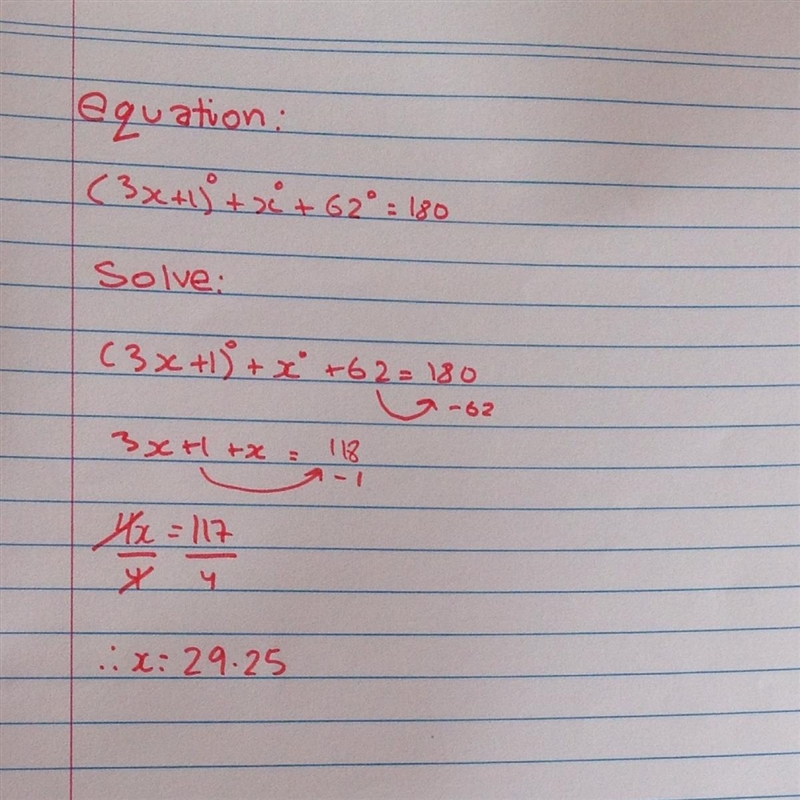 equation:
(3x+1)° + x° + 62° = 180
Solve:
(3x+1)° + x° + 62 = 180
-62
3x+1 +x = 118
-1
4x = 117
4 4
∴ x = 29.25